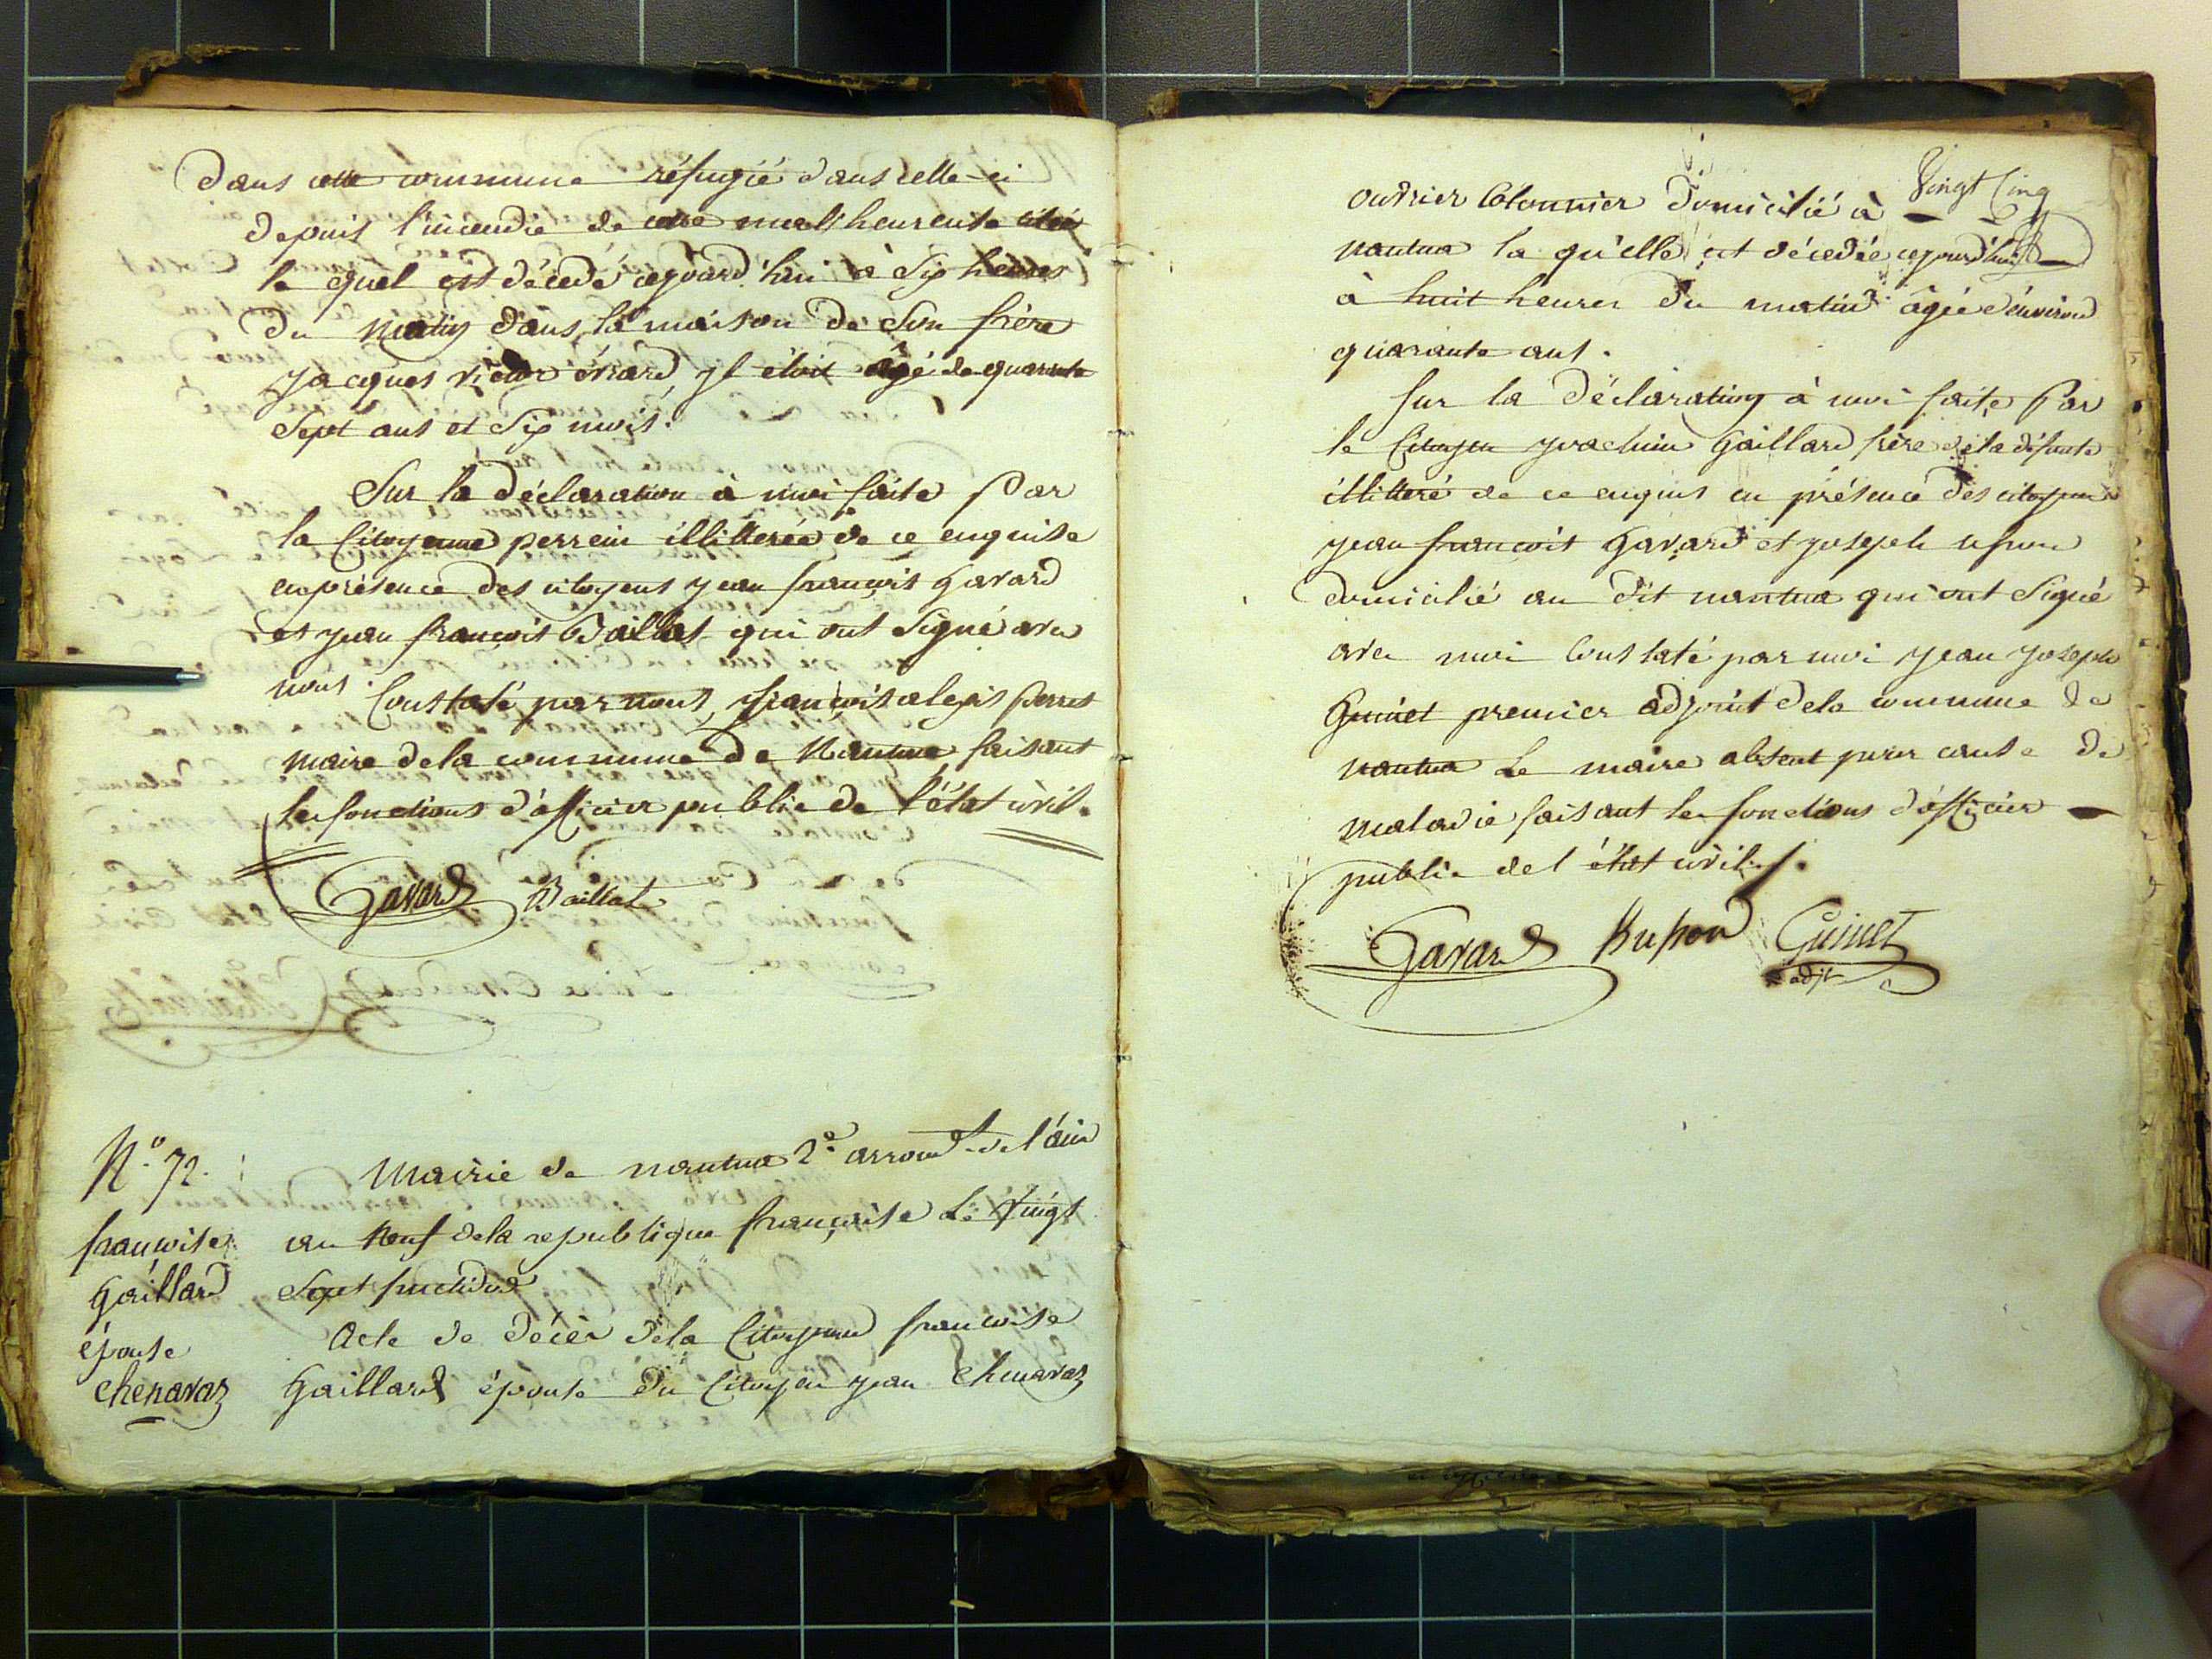 dans cette commune réfugié dans celle-ci
depuis l'incendie de cette malheureuse cité
le quel est décedé cejourd'hui à Six heures
du matin dans la maison de Son frère
jacques victor érard, jl étoit âgé de quarante
Sept ans et Six mois.
Sur la déclaration à moi faite Par
la Citoyenne perrein illitterée de ce enquise
en présence des citoyens jean françois Gavard
et jean françois Baillat qui ont Signé avec
nous. Constaté par nous, françois alexis perret
maire dela commune de Nantua faisant
les fonctions d'officier public de l'état civil.
Gavard Baillat
N.º 72. Mairie de nantua 2e arrond.t de l'ain
françoise an Neuf dela republique françoise Le Vingt
Gaillard Sept fructidor
épouse Acte de décès dela Citoyenne francoise
chenavaz Gaillard épouse du Citoyen jean Chenavaz
Vingt Cinq
ouvrier Cotonnier domicilié à
nantua la qu'elle est décedée cejourd'hui
à huit heures du matin âgée d'environ
quarante ans.
Sur la déclaration à moi faite Par
le Citoyen joachim Gaillard frère de la défunte
illitteré de ce enquis en présence des citoyens
jean francoit Gavard et joseph
domicilié au dit nantua qui ont Signé
avec moi Constaté par moi jean joseph
Guinet premier adjoint dela commune de
nantua Le maire absent pour cause de
maladie faisant les fonctions d'officier
public de l'état civil.
Gavard Guinet
adjt